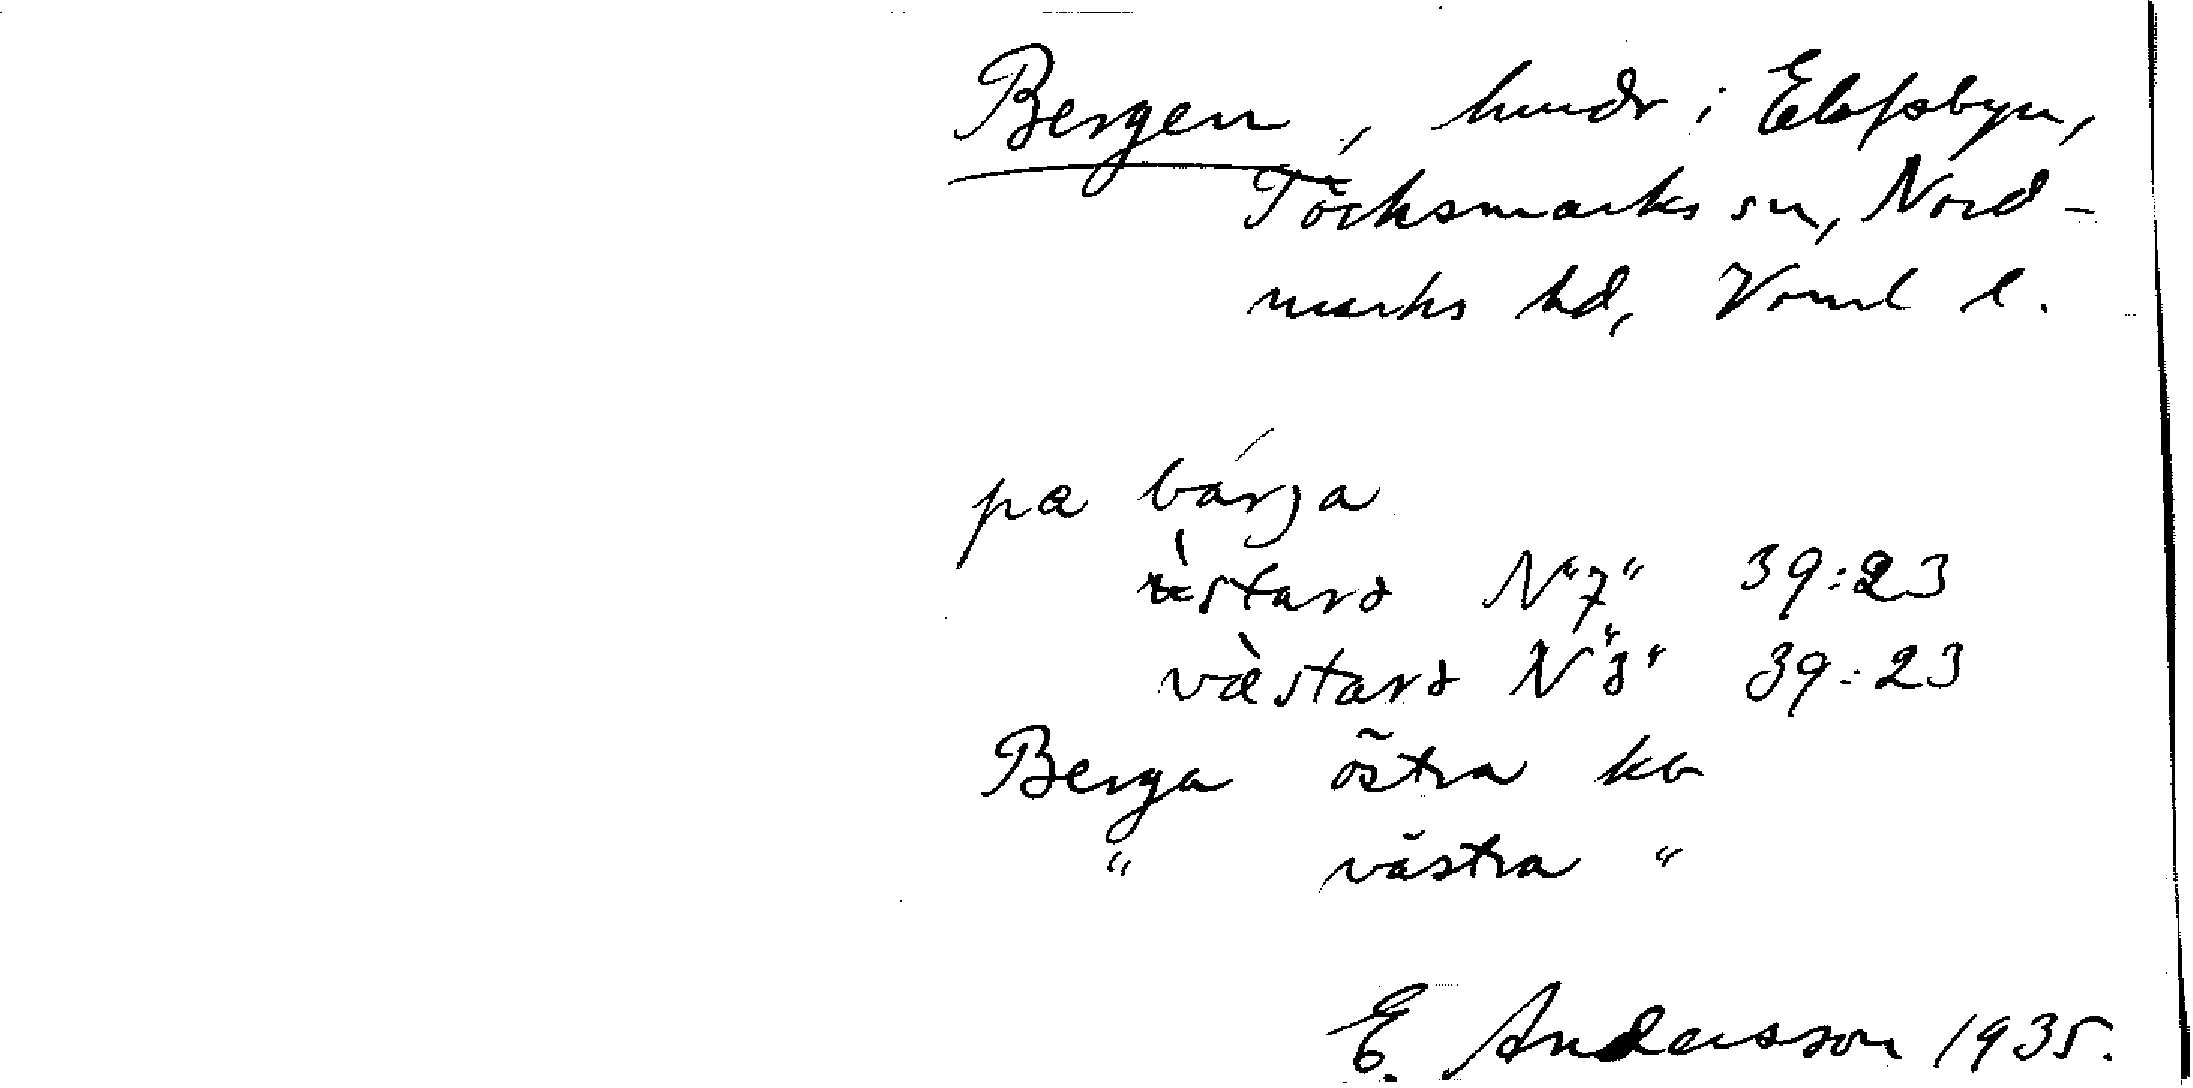 Bergen, hmdr i Elofsbyn,
Töcksmarks sn, Nord-
marks hd, Vrml l.
pa bárja
ùstard N"7" 39:23
vàstard N"3" 39:23
Berga östra kb
" västra "
E. Andersson 1935.